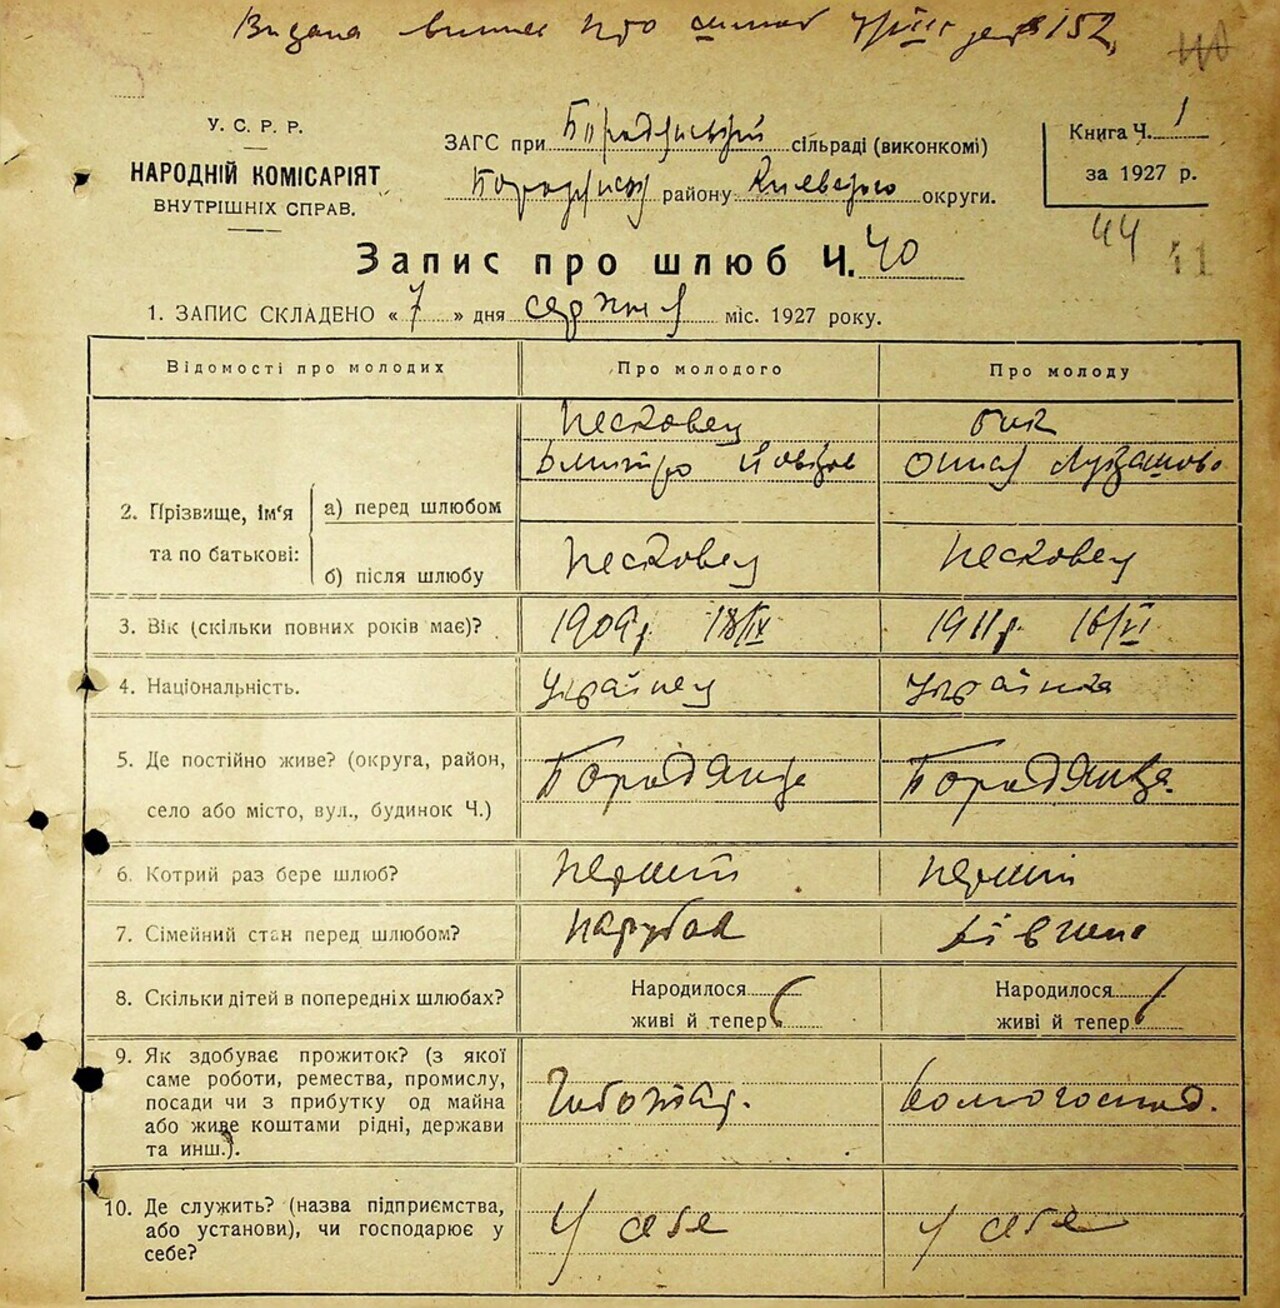 Видана про шлюб 152
40
У. С. Р. Р.
НАРОДНІЙ КОМІСАРІЯТ
ВНУТРІШНІХ СПРАВ.
ЗАГС при Бородянській сільраді (виконкомі)
району Київської округи.
Книга Ч. 1
за 1927 р.
44 41
Запис про шлюб Ч. 40
1. ЗАПИС СКЛАДЕНО « 7 » дня серпня міс. 1927 року.
Відомості про молодих Про молодого Про молоду
2. Прізвище, ім'я та по батькові:
а) перед шлюбом
Песковец
Дмитро
Бик
б) після шлюбу
Песковец Песковец
3. Вік (скільки повних років має)? 1909 р. 18/IX 1911 р. 16/VI
4. Національність. Українец Українка
5. Де постійно живе? (округа, район,
село або місто, вул., будинок Ч.)
Бородянка Бородянка
6. Котрий раз бере шлюб? перший перший
7. Сімейний стан перед шлюбом? парубок дівчина
8. Скільки дітей в попередніх шлюбах? Народилося Народилося
живі й тепер живі й тепер
9. Як здобуває прожиток? (з якої
саме роботи, ремества, промислу,
посади чи з прибутку од майна
або живе коштами рідні, держави
та инш.).
10. Де служить? (назва підприємства,
або установи), чи господарює у
себе?
У себе у себе